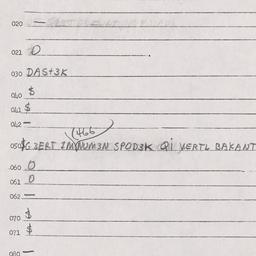 020 —
021 0
030 DAS+3K
040 $
041 $
042 —
466
050 $G 3ERT IMNUM3N SPOD3K Qi VERTL BAKANT
060 0
061 0
062 —
070 $
071 $
080 —